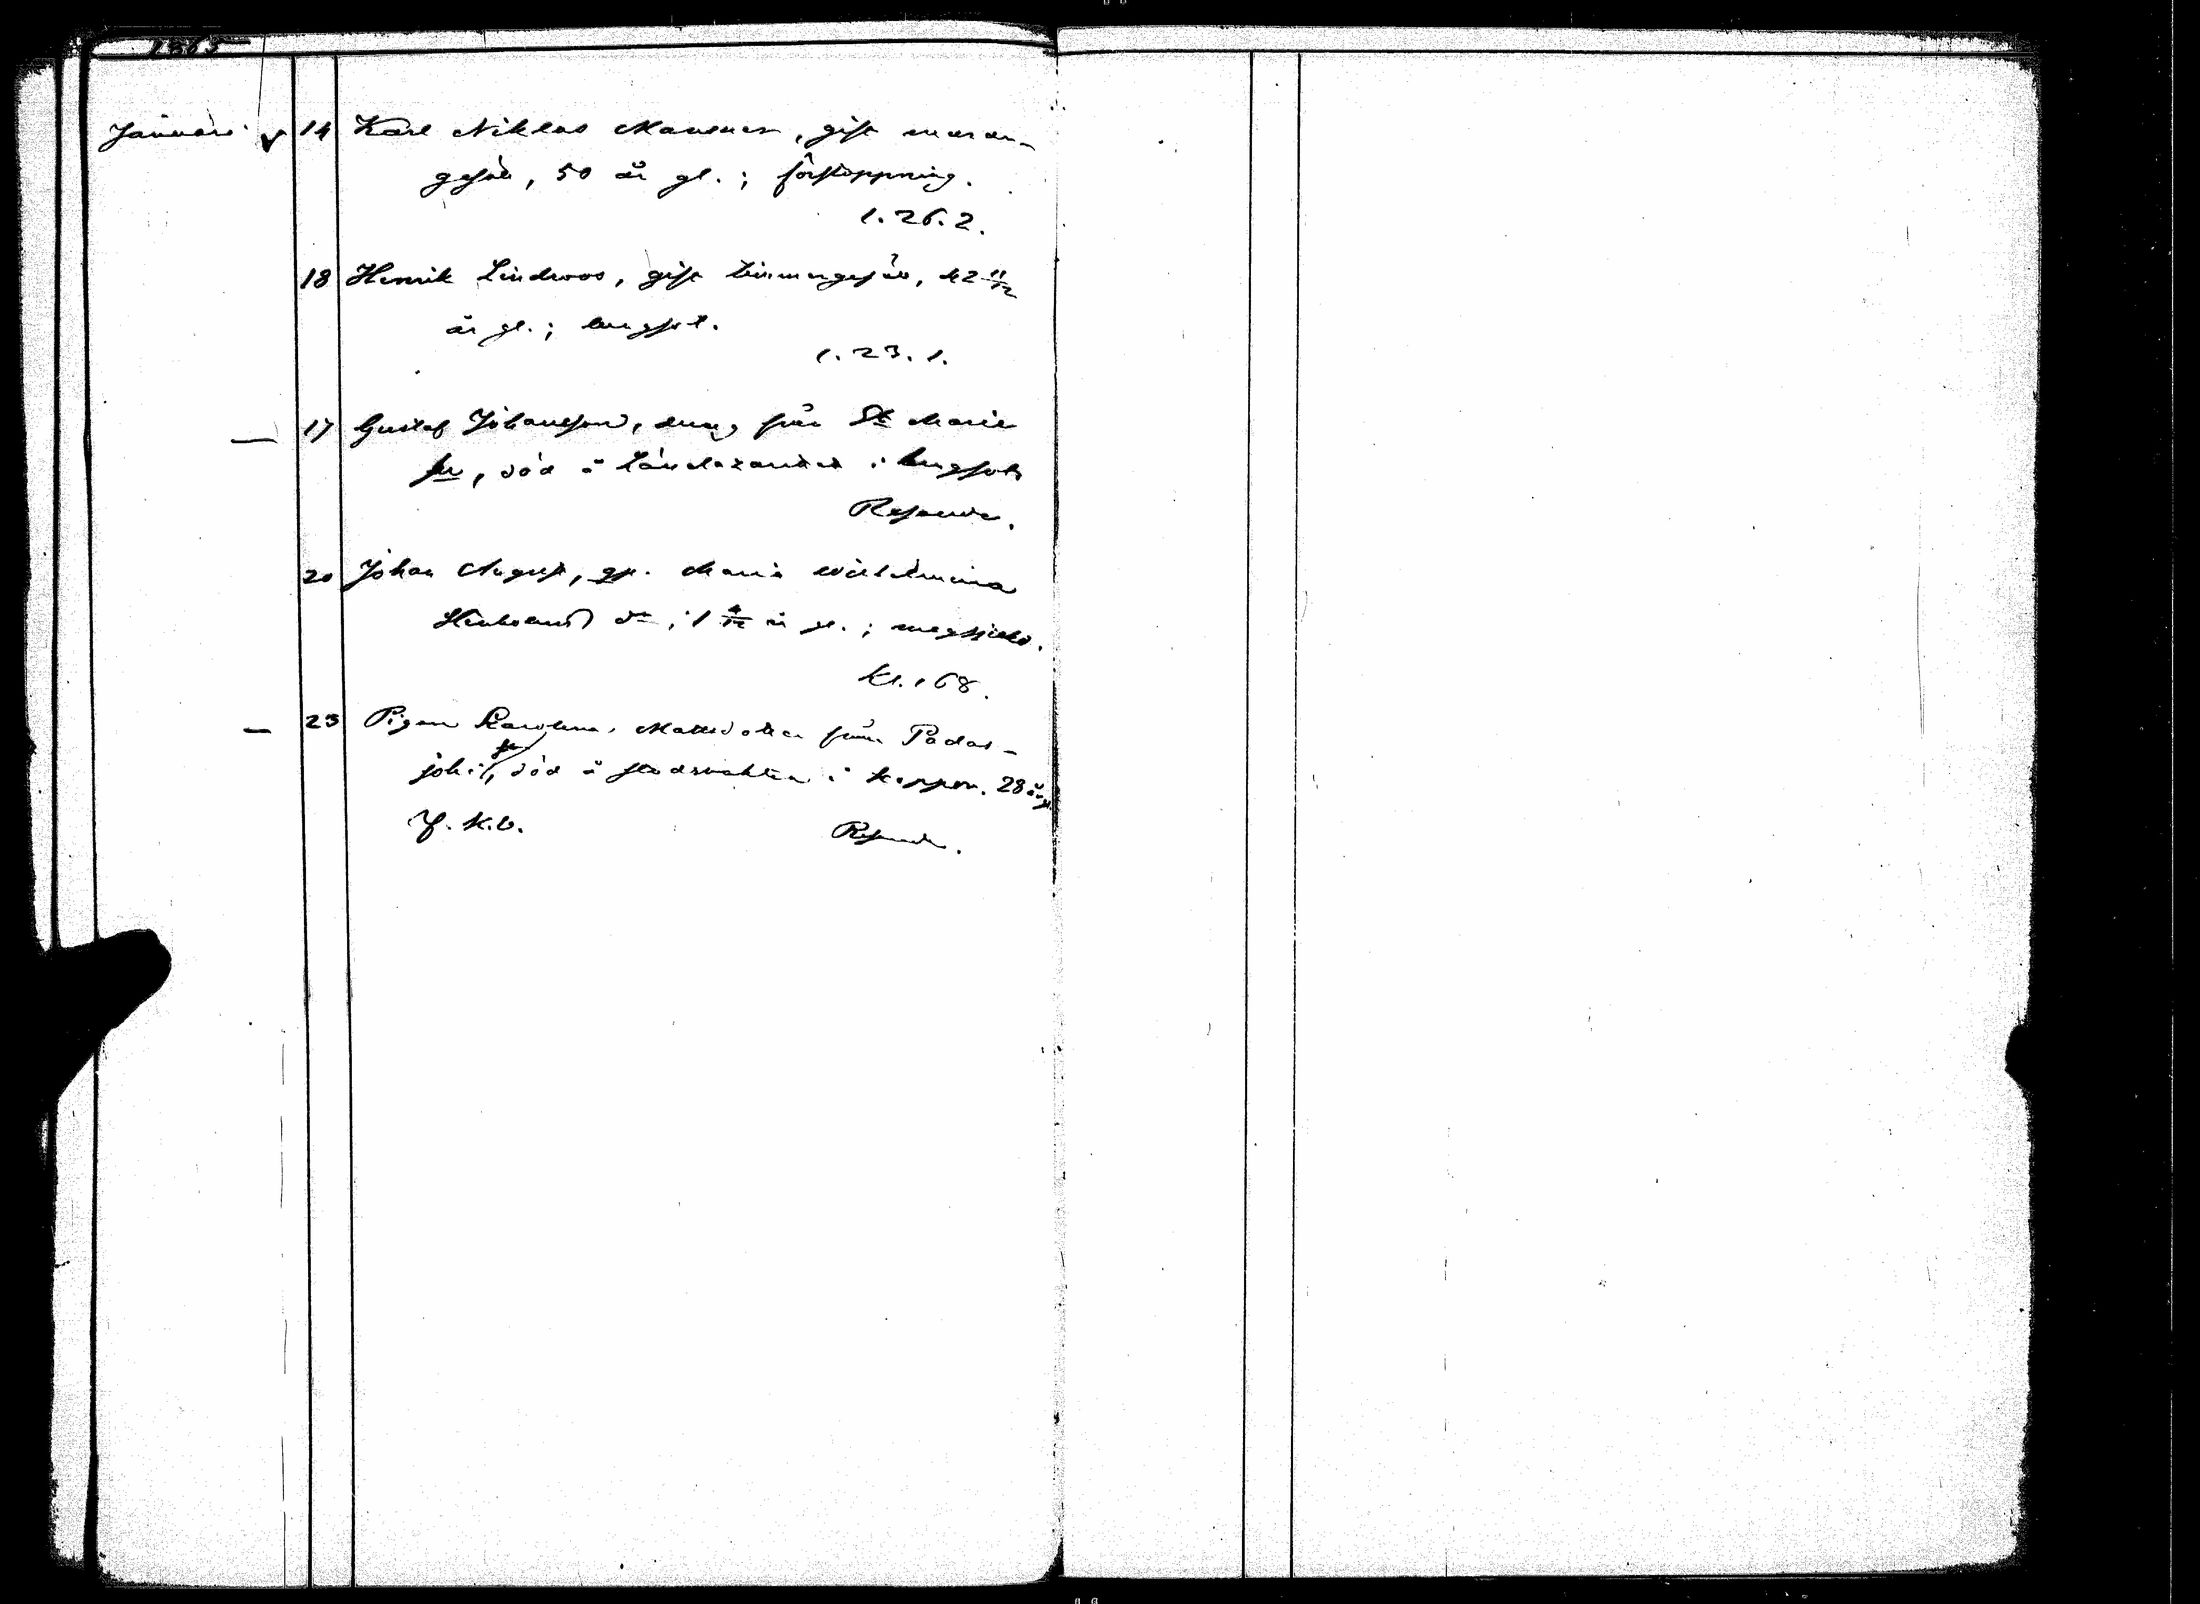 1865
Januari v 14 Karl Niklas Mansner, gift murar-
gesäll, 50 år gl.; förstoppning.
1.26.2.
18 Henrik Lindroos, gift timmergesäll, 42 11/12
år gl.; lungsot.
1.23.1.
— 17 Gustaf Johansson, dreng från St Marie
sn, död å Länslazarettet i lungsot
Resande.
20 Johan August, gp. Maria Wilhelmina
dr, 1 4/12 år gl.; magsjuka.
Kl. 168.
— 23 Pigan Karolina Mattsdotter från Padas-
joki sn, död å stadsvakten i koppor. 28 år gl.
Resande.